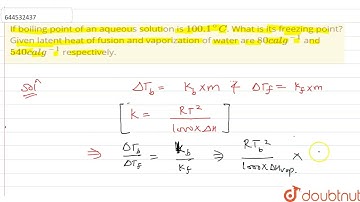 644532437
If boiling point of an aqueous solution is 100.1°C. What is its freezing point?
Given latent heat of fusion and vaporization of water are 80calg⁻¹ and
540calg⁻¹ respectively.
Solⁿ ΔT_b = K_b × m & ΔT_f = K_f × m
[ K = RT² / 1000×ΔH ]
⇒ ΔT_b / ΔT_f = K_b / K_f ⇒ RT_b² / 1000×ΔH_vap. ×
doubtnut